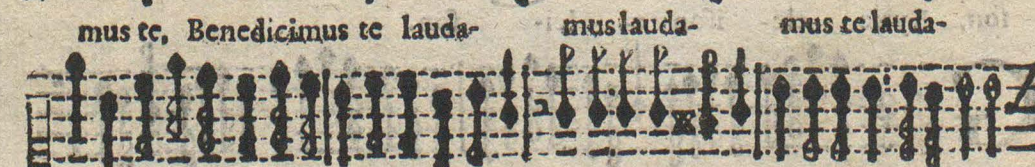 mus te, Benedicimus te lauda- mus lauda- mus te lauda-